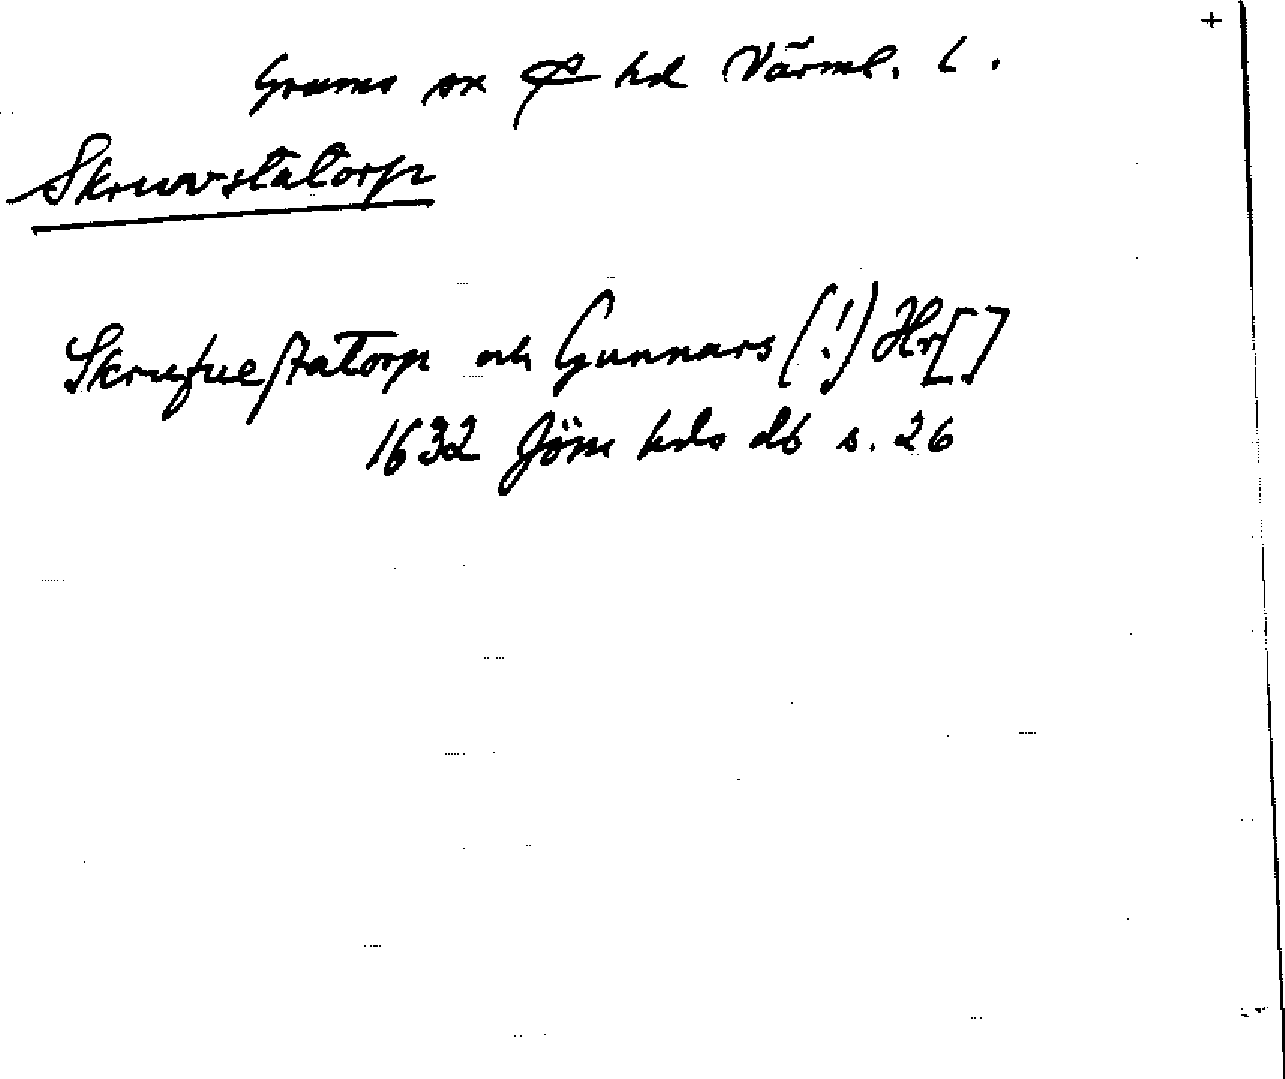 +
Grums sn o hd Värml. l.
Skruvstatorp
Skrufuestatorp och Gunnars (!) Hr[]
1632 Jöns hds db s. 26